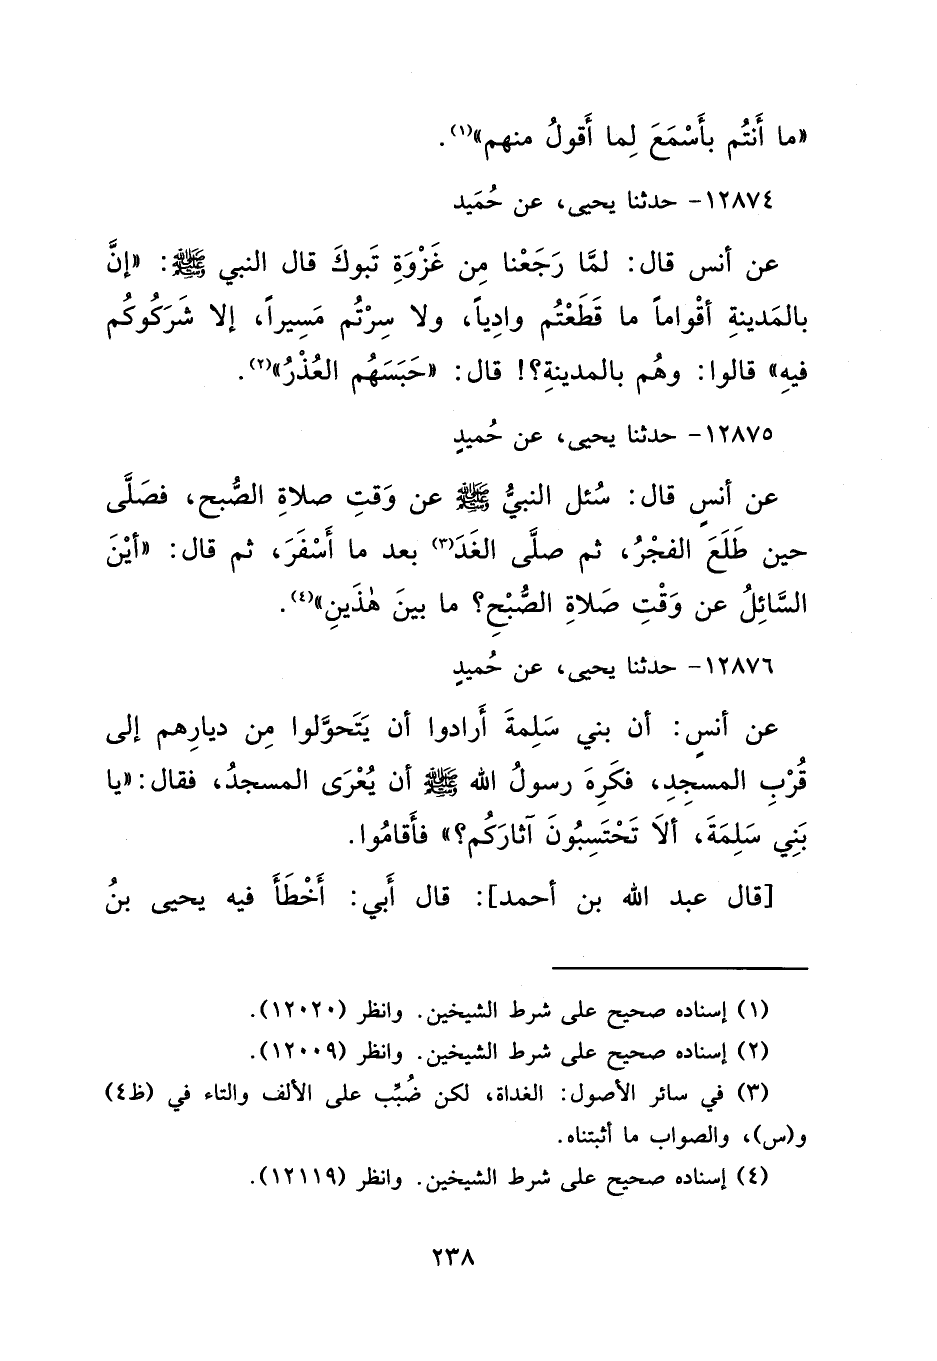 «ما أَنتُم بأَسْمَعَ لِما أَقولُ منهم»(١).
١٢٨٧٤- حدثنا يحيى، عن حُمَيد
عن أنس قال: لمَّا رَجَعْنا مِن غَزْوَةِ تَبوكَ قال النبي ﷺ: «إنَّ
بالمَدينةِ أقْواماً ما قَطَعْتُم وادِياً، ولا سِرْتُم مَسِيراً، إلا شَرَكُوكُم
فيهِ» قالوا: وهُم بالمدينةِ؟! قال: «حَبَسَهُم العُذْرُ»(٢).
١٢٨٧٥- حدثنا يحيى، عن حُميدٍ
عن أنسٍ قال: سُئل النبيُّ ﷺ عن وَقتِ صلاةِ الصُّبح، فصَلَّى
حين طَلَعَ الفجْرُ، ثم صلَّى الغَدَ(٣) بعد ما أَسْفَرَ، ثم قال: «أيْنَ
السَّائِلُ عن وَقْتِ صَلاةِ الصُّبْحِ؟ ما بينَ هٰذَينِ»(٤).
١٢٨٧٦- حدثنا يحيى، عن حُميدٍ
عن أنسٍ: أن بني سَلِمةَ أَرادوا أن يَتَحوَّلوا مِن ديارِهم إلى
قُرْبِ المسجِدِ، فكَرِهَ رسولُ الله ﷺ أن يُعْرَى المسجدُ، فقال: «يا
بَنِي سَلِمَةَ، ألاَ تَحْتَسِبُونَ آثارَكُم؟» فأَقامُوا.
[قال عبد الله بن أحمد]: قال أَبي: أَخْطَأَ فيه يحيى بنُ
(١) إسناده صحيح على شرط الشيخين. وانظر (١٢٠٢٠).
(٢) إسناده صحيح على شرط الشيخين. وانظر (١٢٠٠٩).
(٣) في سائر الأصول: الغداة، لكن ضُبِّب على الألف والتاء في (ظ٤)
و(س)، والصواب ما أثبتناه.
(٤) إسناده صحيح على شرط الشيخين. وانظر (١٢١١٩).
٢٣٨